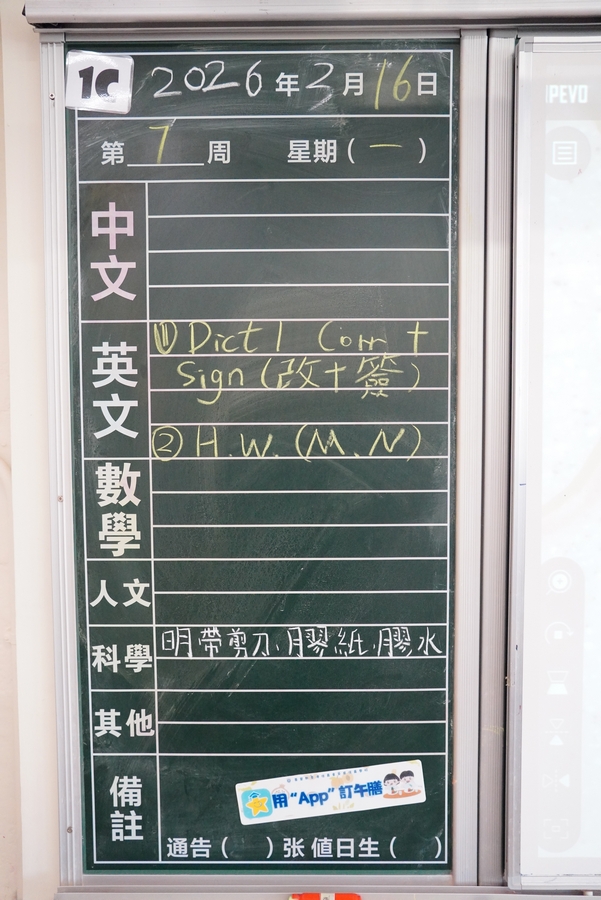 1C
2026年2月16日
第7周 星期(一)
中文
英文
① Dict 1 Corr +
Sign (改+簽)
② H.W. (M、N)
數學
人文
科學
明帶剪刀、膠紙、膠水
其他
備註
用“App”訂午膳
通告( )张 值日生( )
IPEVO